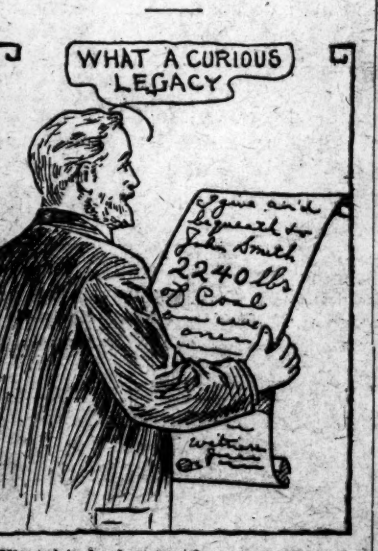 WHAT A CURIOUS
LEGACY
I give and
bequeath to
John Smith
2240 lbs
of Coal
witness